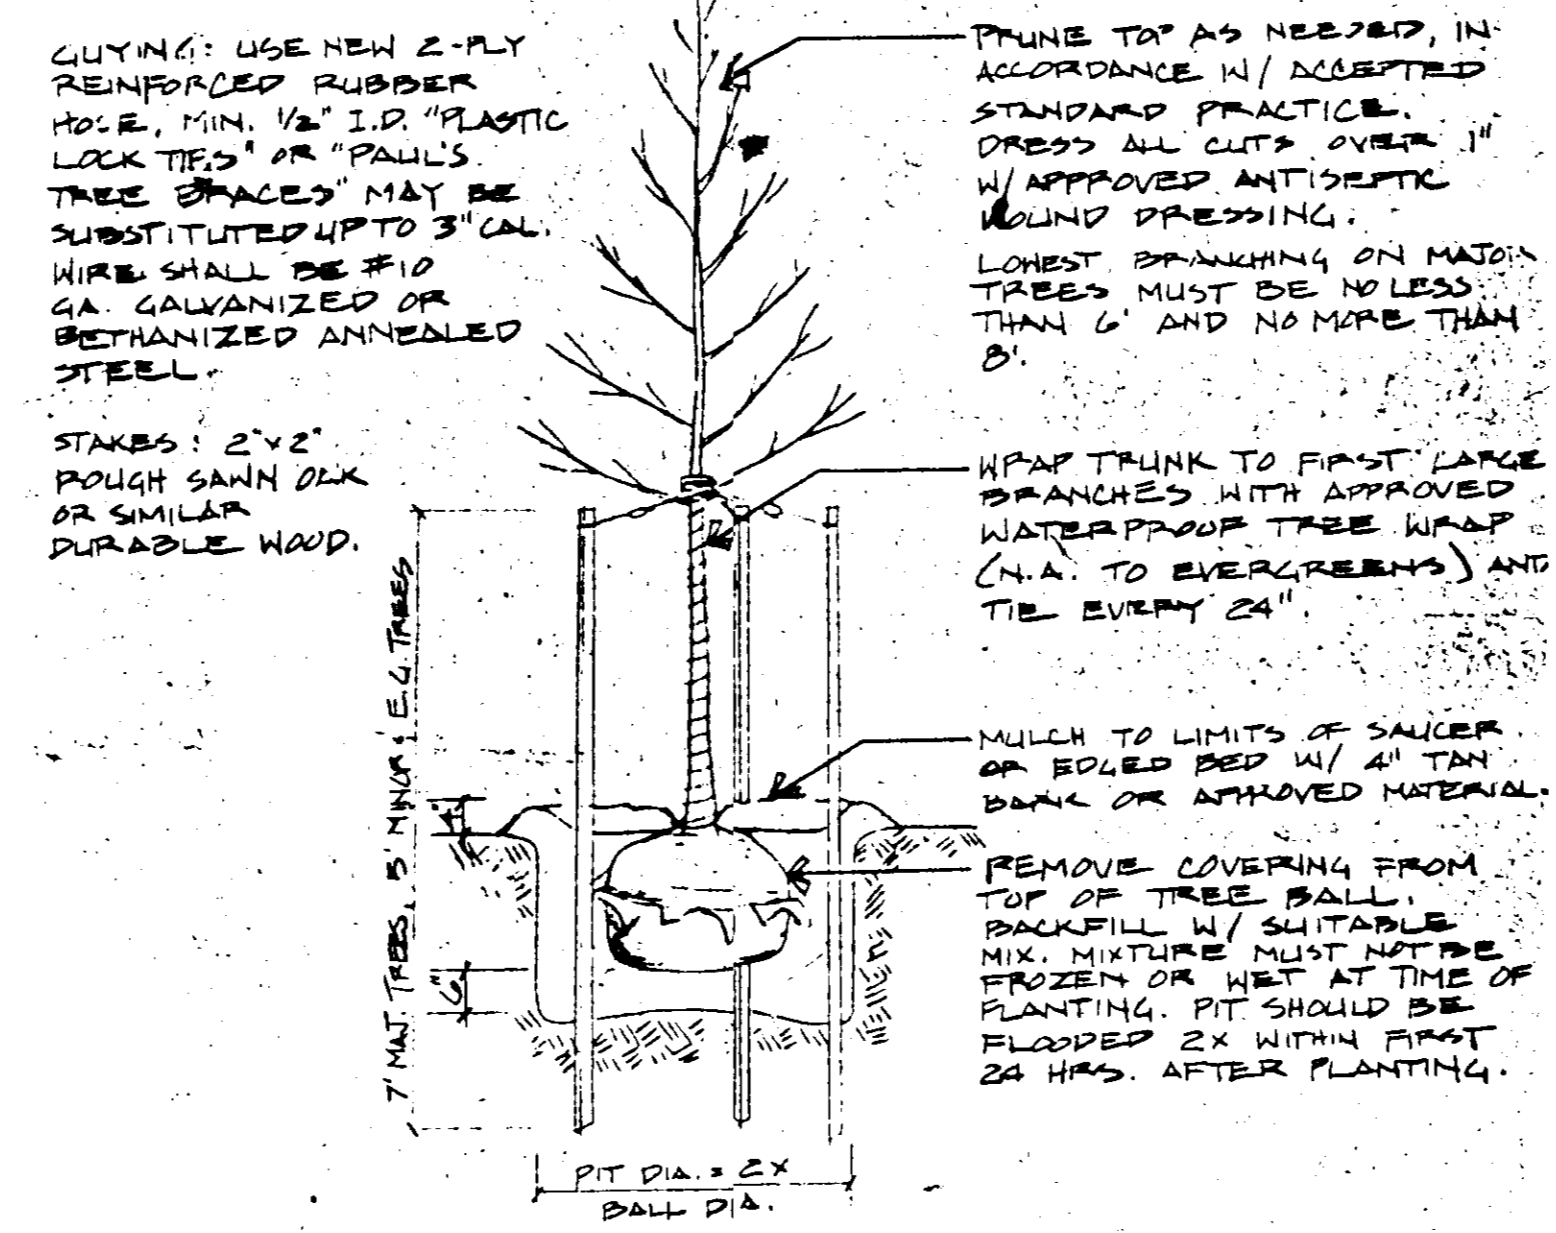 GUYING: USE NEW 2-PLY
REINFORCED RUBBER
HOSE, MIN. 1/2" I.D. "PLASTIC
LOCK TIES" OR "PAUL'S
TREE BRACES" MAY BE
SUBSTITUTED UP TO 3" CAL.
WIRE SHALL BE #10
GA. GALVANIZED OR
BETHANIZED ANNEALED
STEEL.
STAKES: 2"x2"
ROUGH SAWN OAK
OR SIMILAR
DURABLE WOOD.
PRUNE TOP AS NEEDED, IN
ACCORDANCE W/ ACCEPTED
STANDARD PRACTICE.
DRESS ALL CUTS OVER 1"
W/ APPROVED ANTISEPTIC
WOUND DRESSING.
LOWEST BRANCHING ON MAJOR
TREES MUST BE NO LESS
THAN 6' AND NO MORE THAN
8'.
WRAP TRUNK TO FIRST LARGE
BRANCHES WITH APPROVED
WATERPROOF TREE WRAP
(N.A. TO EVERGREENS) AND
TIE EVERY 24".
MULCH TO LIMITS OF SAUCER
OR EDGED BED W/ 4" TAN
BARK OR APPROVED MATERIAL.
REMOVE COVERING FROM
TOP OF TREE BALL.
BACKFILL W/ SUITABLE
MIX. MIXTURE MUST NOT BE
FROZEN OR WET AT TIME OF
PLANTING. PIT SHOULD BE
FLOODED 2X WITHIN FIRST
24 HRS. AFTER PLANTING.
7' MAJ. TREES, 5' MINOR & E.G. TREES
4"
6"
PIT DIA. = 2X
BALL DIA.